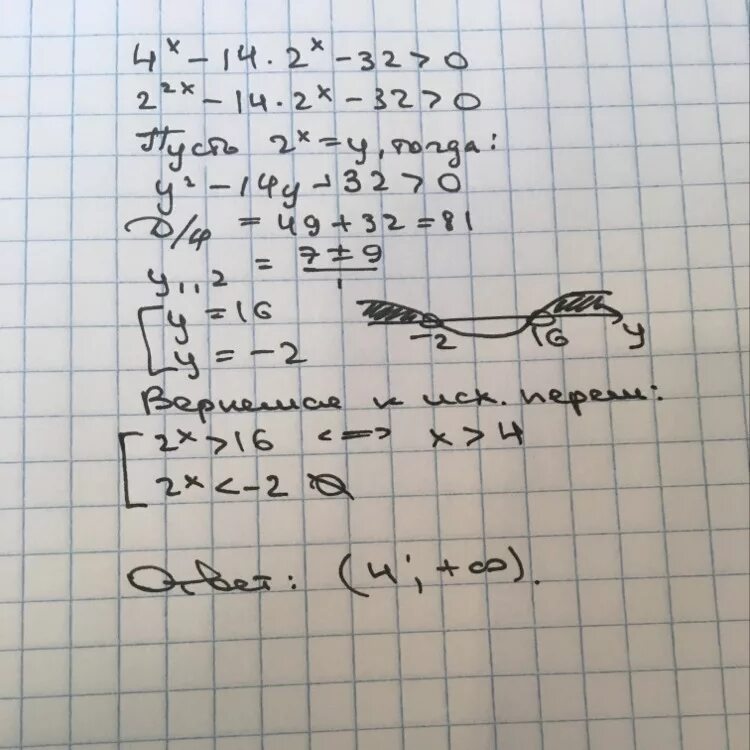 4^x - 14 · 2^x - 32 > 0
2^2x - 14 · 2^x - 32 > 0
Пусть 2^x = y, тогда:
y² - 14y - 32 > 0
D/4 = 49 + 32 = 81
y₁,₂ = (7 ± 9)/1
[ y = 16
[ y = -2
-2 16 y
Вернемся к исх. перем:
[ 2^x > 16 <=> x > 4
[ 2^x < -2 ∅
Ответ: (4; +∞).